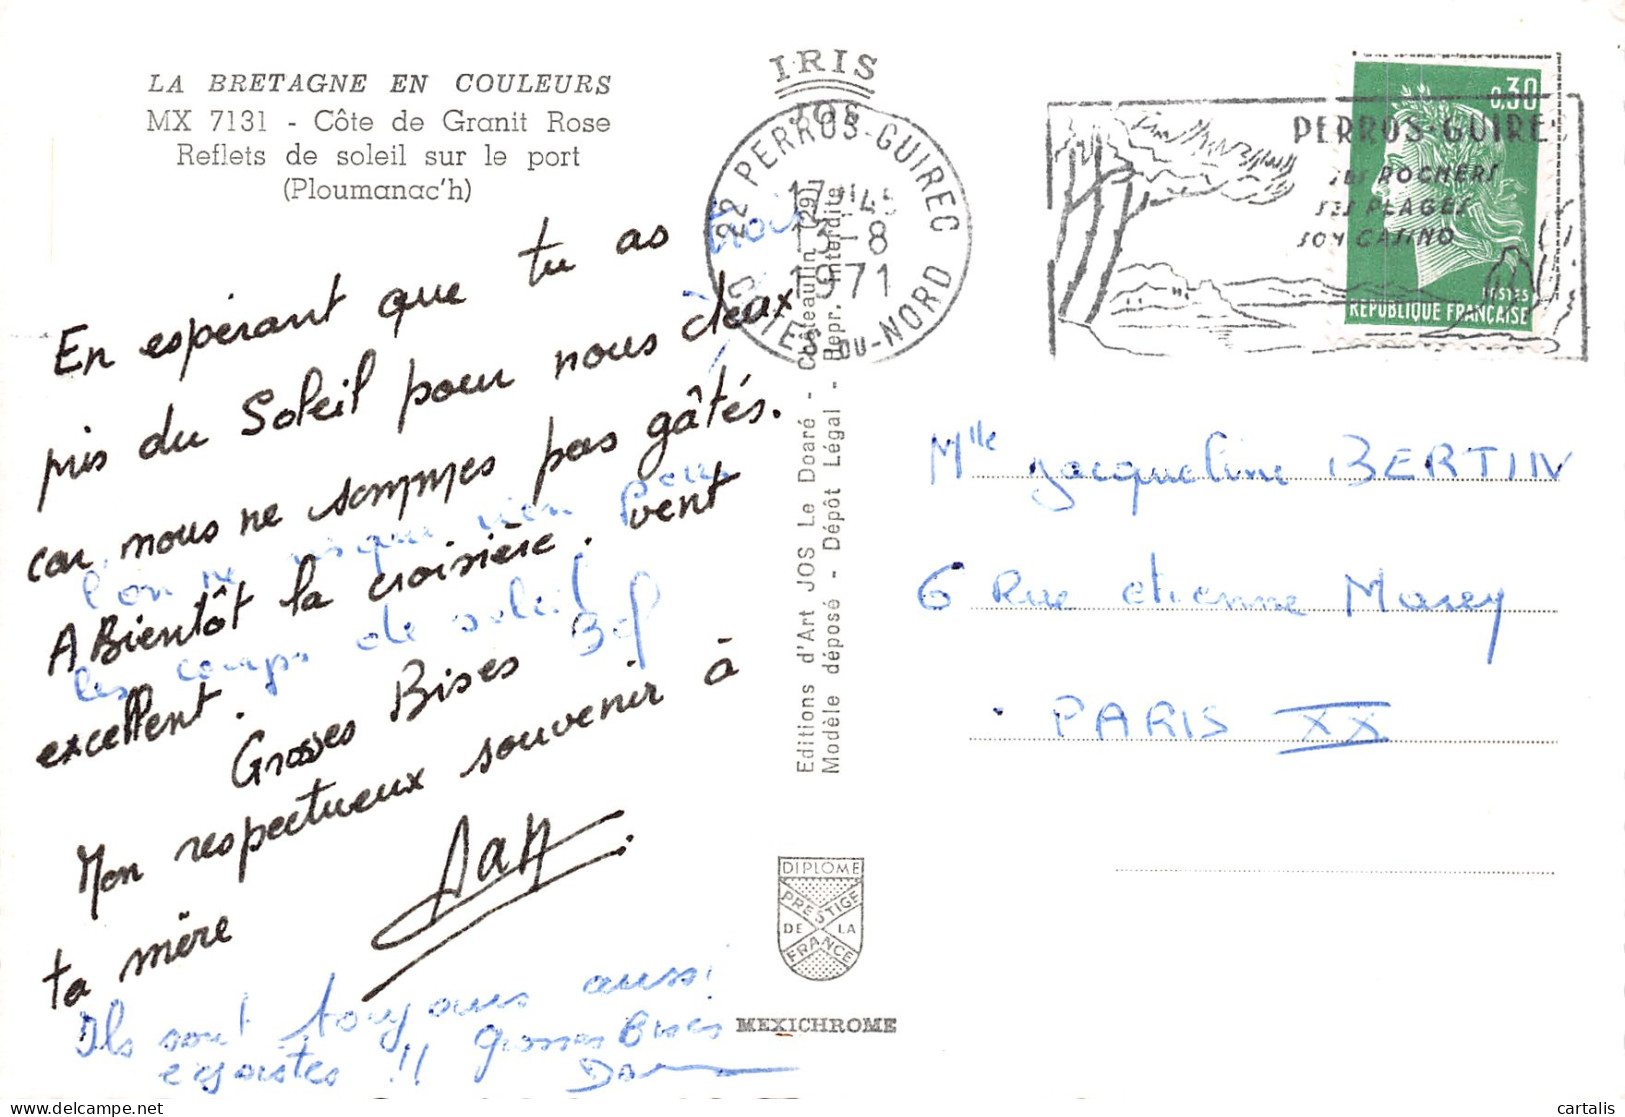 LA BRETAGNE EN COULEURS
MX 7131 - Côte de Granit Rose
Reflets de soleil sur le port
(Ploumanac'h)
En espérant que tu as
trois
pris du Soleil pour nous deux
car nous ne sommes pas gâtés.
l'on ne risque rien pour
A Bientôt la croisière. vent
les coups de soleil
excellent.
Grosses Bises
Mon respectueux souvenir à
ta mère
Ils sont toujours aussi
égoistes !! Grosses Bises
IRIS
JOS
Editions d'Art JOS Le Doaré - Châteaulin (29)
Modèle déposé - Dépôt Légal - Repr. interdite
DIPLOME
PRESTIGE
DE LA
FRANCE
MEXICHROME
22 PERROS-GUIREC
17H45
13-8
1971
COTES-DU-NORD
PERROS-GUIREC
SES ROCHERS
SES PLAGES
SON CASINO
0,30
POSTES
REPUBLIQUE FRANÇAISE
Mlle Jacqueline BERTIN
6 Rue etienne Marey
PARIS XX
cartalis
delcampe.net